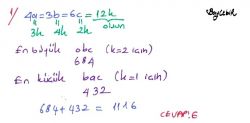 1/ 4a=3b=6c=12k
olsun
3k 4k 2k
En büyük abc (k=2 için)
684
En küçük bac (k=1 için)
432
684+432 = 1116
CEVAP: E